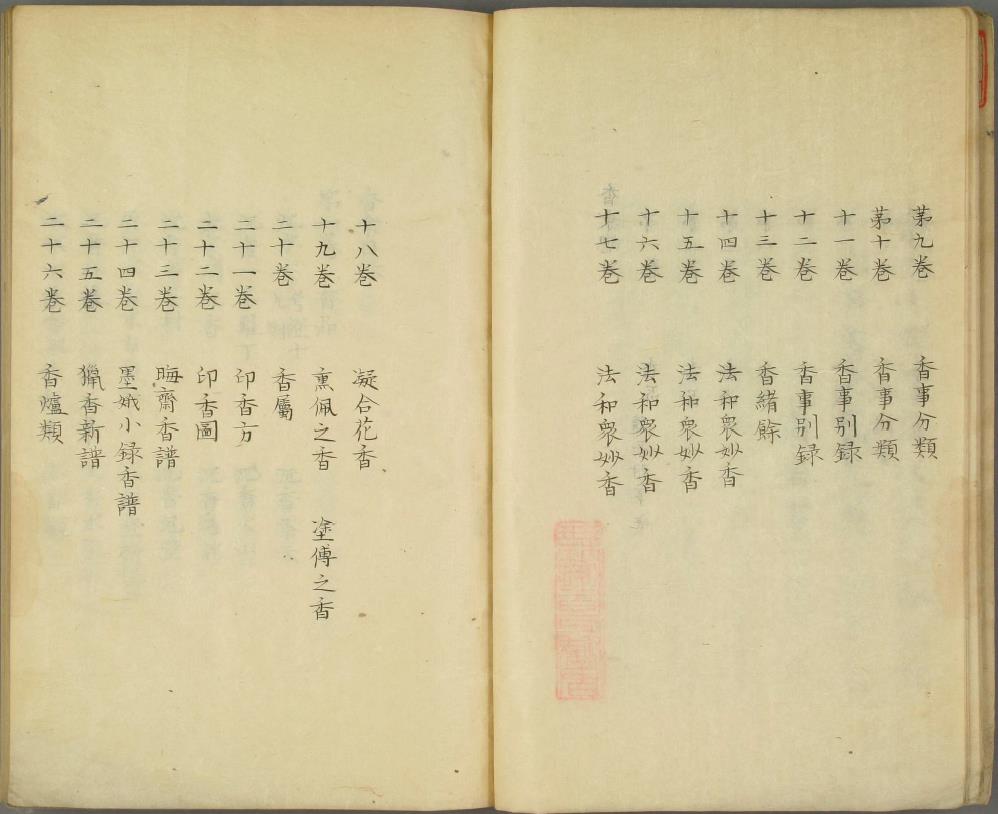 第九卷 香事分類
第十卷 香事分類
十一卷 香事别録
十二卷 香事别録
十三卷 香緒餘
十四卷 法和衆妙香
十五卷 法和衆妙香
十六卷 法和衆妙香
十七卷 法和衆妙香
十八卷 凝合花香
十九卷 熏佩之香 塗傅之香
二十卷 香屬
二十一卷 印香方
二十二卷 印香圖
二十三卷 晦齋香譜
二十四卷 墨娥小録香譜
二十五卷 獵香新譜
二十六卷 香爐類